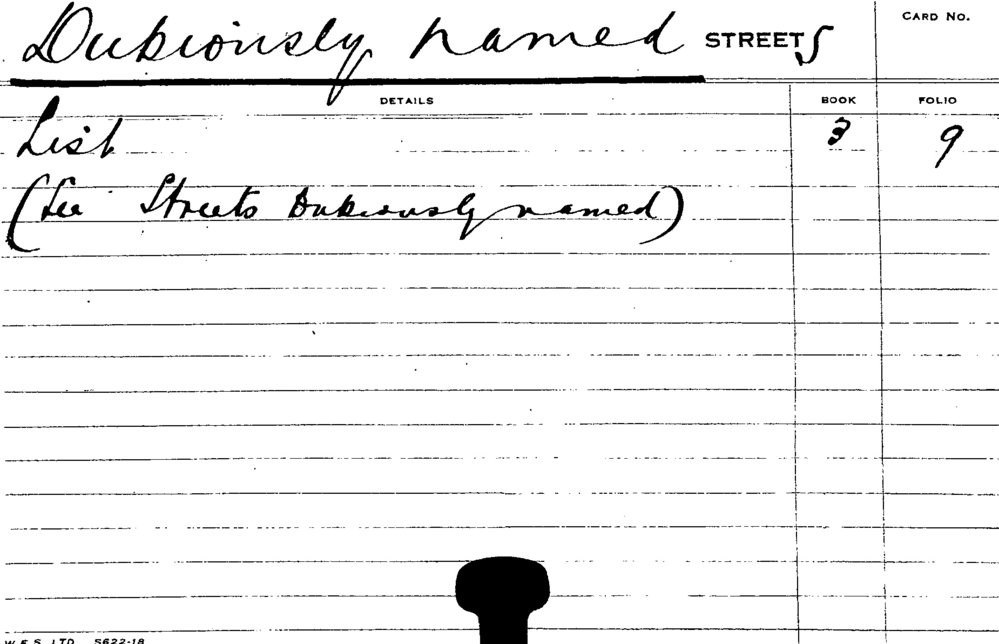 Dubiously named STREETS
CARD NO.
DETAILS BOOK FOLIO
List 3 9
(See Streets Dubiously named)
W.F.S. LTD. S622-18